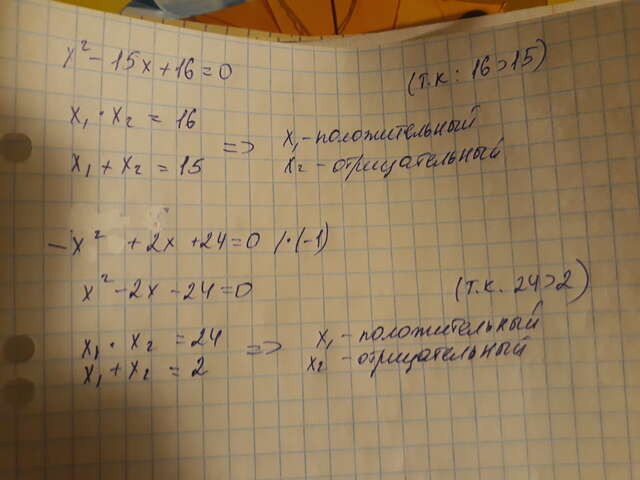 x² - 15x + 16 = 0
(т.к: 16>15)
x₁ · x₂ = 16
x₁ + x₂ = 15
=> x₁ - положительный
x₂ - отрицательный
-x² + 2x + 24 = 0 /·(-1)
x² - 2x - 24 = 0
(т.к. 24>2)
x₁ · x₂ = 24
x₁ + x₂ = 2
=> x₁ - положительный
x₂ - отрицательный